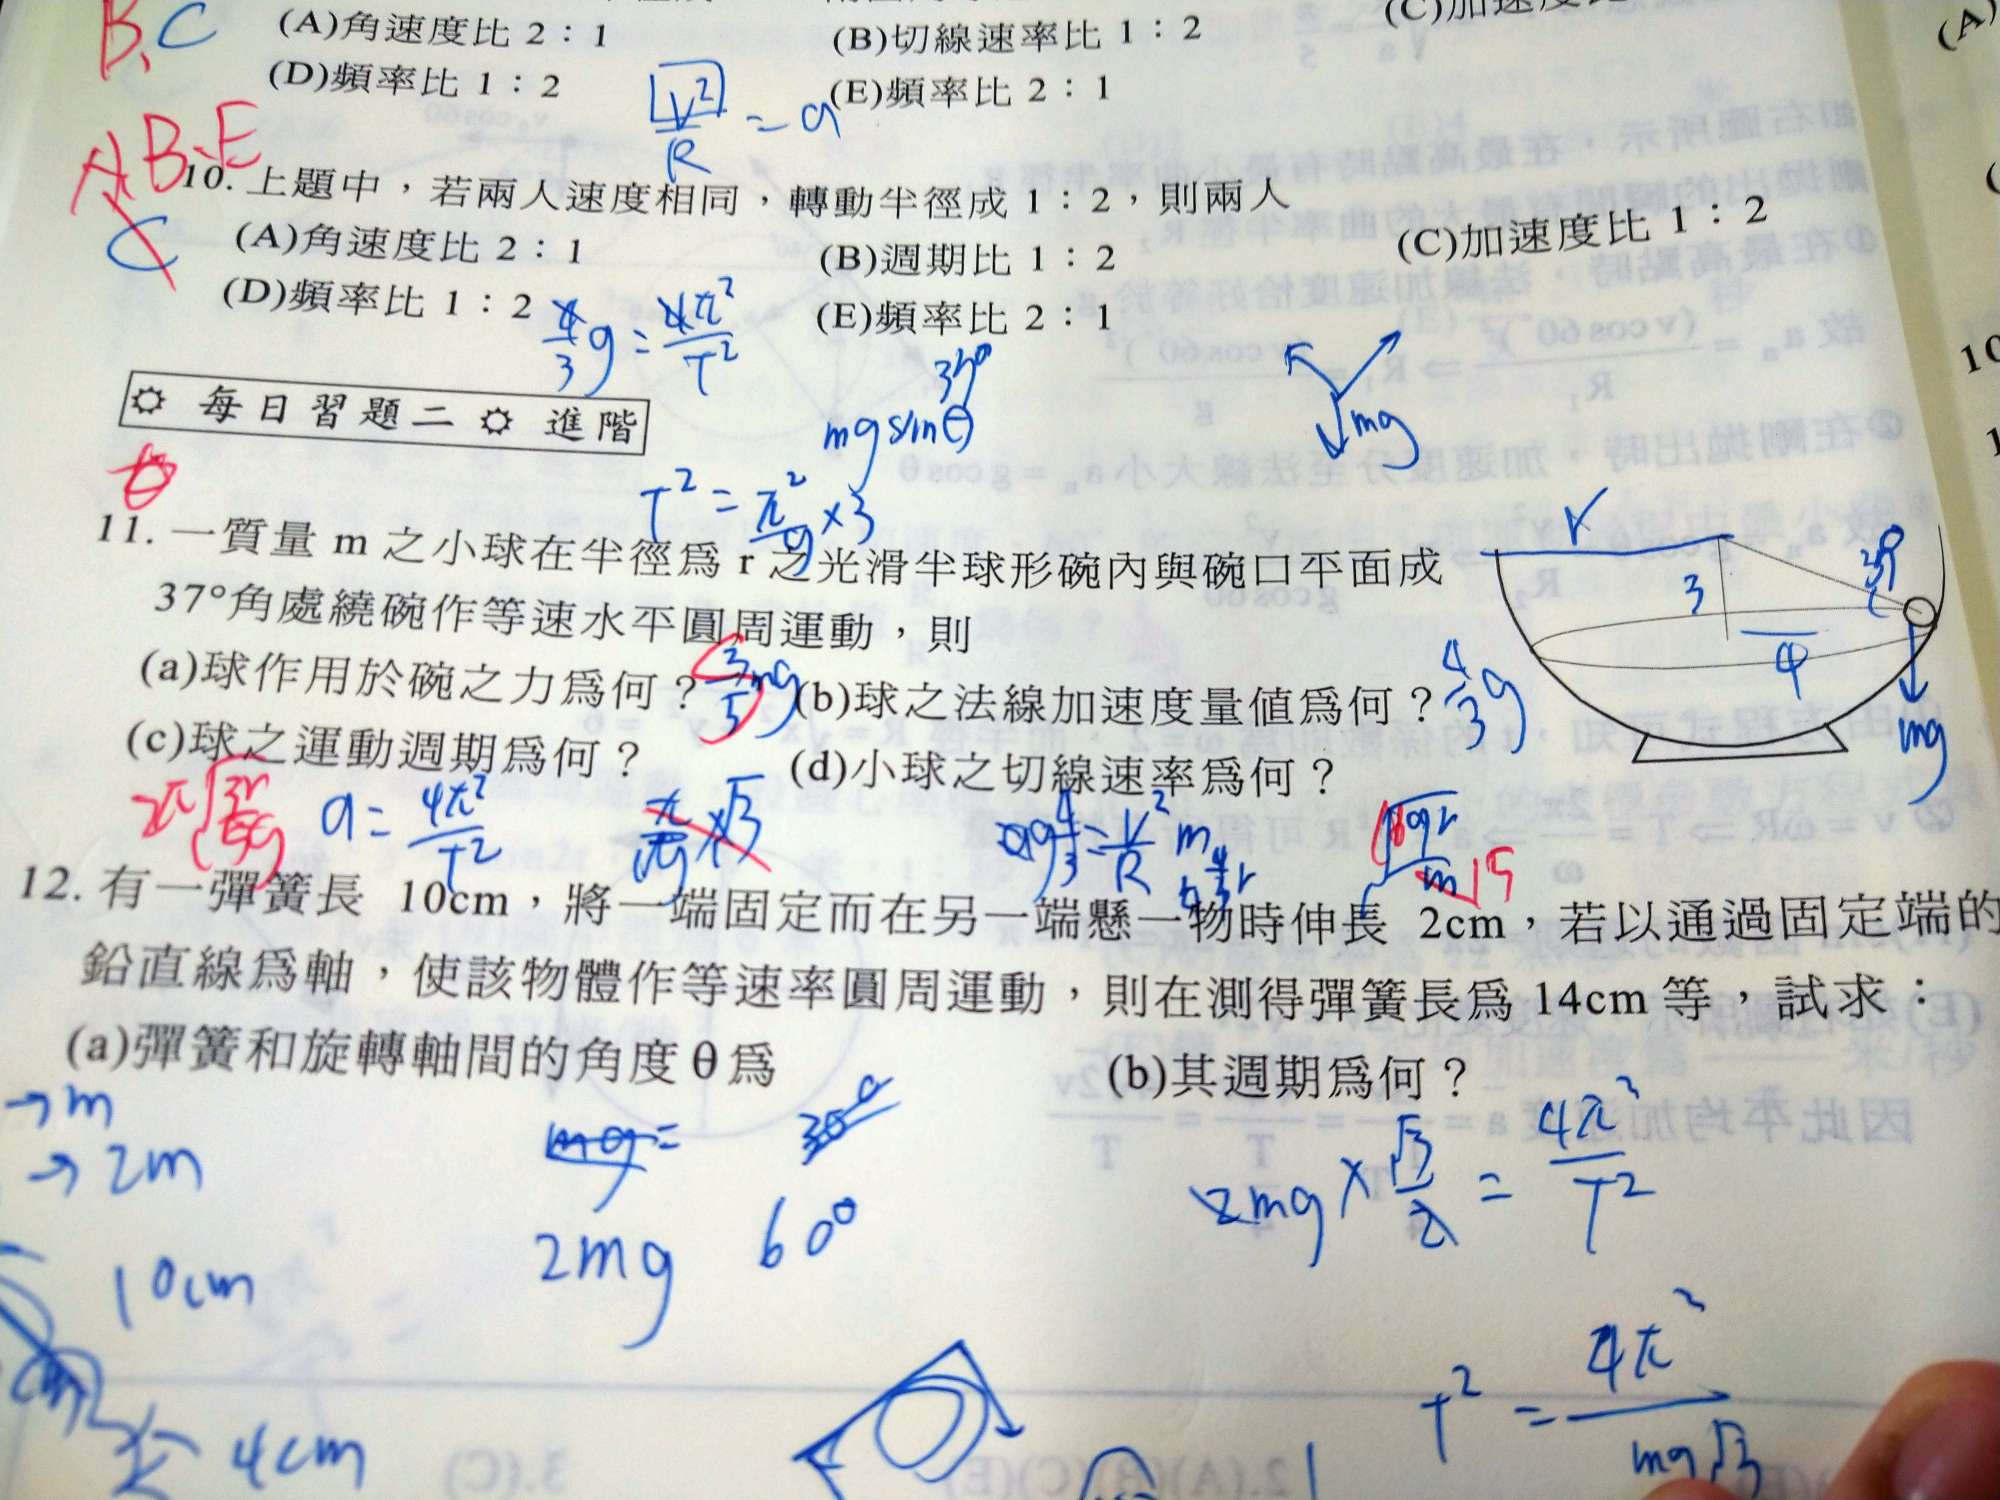 B.C
(A)角速度比 2：1
(B)切線速率比 1：2
(C)加速度比
(D)頻率比 1：2
(E)頻率比 2：1
V²/R = a
A.B.E
C
10. 上題中，若兩人速度相同，轉動半徑成 1：2，則兩人
(A)角速度比 2：1
(B)週期比 1：2
(C)加速度比 1：2
(D)頻率比 1：2
(E)頻率比 2：1
4/3 g = 4π²/T²
37°
mg sinθ
mg
✡ 每日習題二 ✡ 進階
T² = π²/g × 3
11. 一質量 m 之小球在半徑為 r 之光滑半球形碗內與碗口平面成
37°角處繞碗作等速水平圓周運動，則
(a)球作用於碗之力為何？
3/5 mg
(b)球之法線加速度量值為何？
4/3 g
(c)球之運動週期為何？
(d)小球之切線速率為何？
r
3
37°
4
mg
2π√(3r/5g)
a = 4π²/T²
12. 有一彈簧長 10cm，將一端固定而在另一端懸一物時伸長 2cm，若以通過固定端的
鉛直線為軸，使該物體作等速率圓周運動，則在測得彈簧長為 14cm 等，試求：
(a)彈簧和旋轉軸間的角度 θ 為
(b)其週期為何？
→ m
→ 2m
mg =
30°
2mg
60°
2mg × √3/2 = 4π²/T²
10cm
T² = 4π²/mg√3
4cm